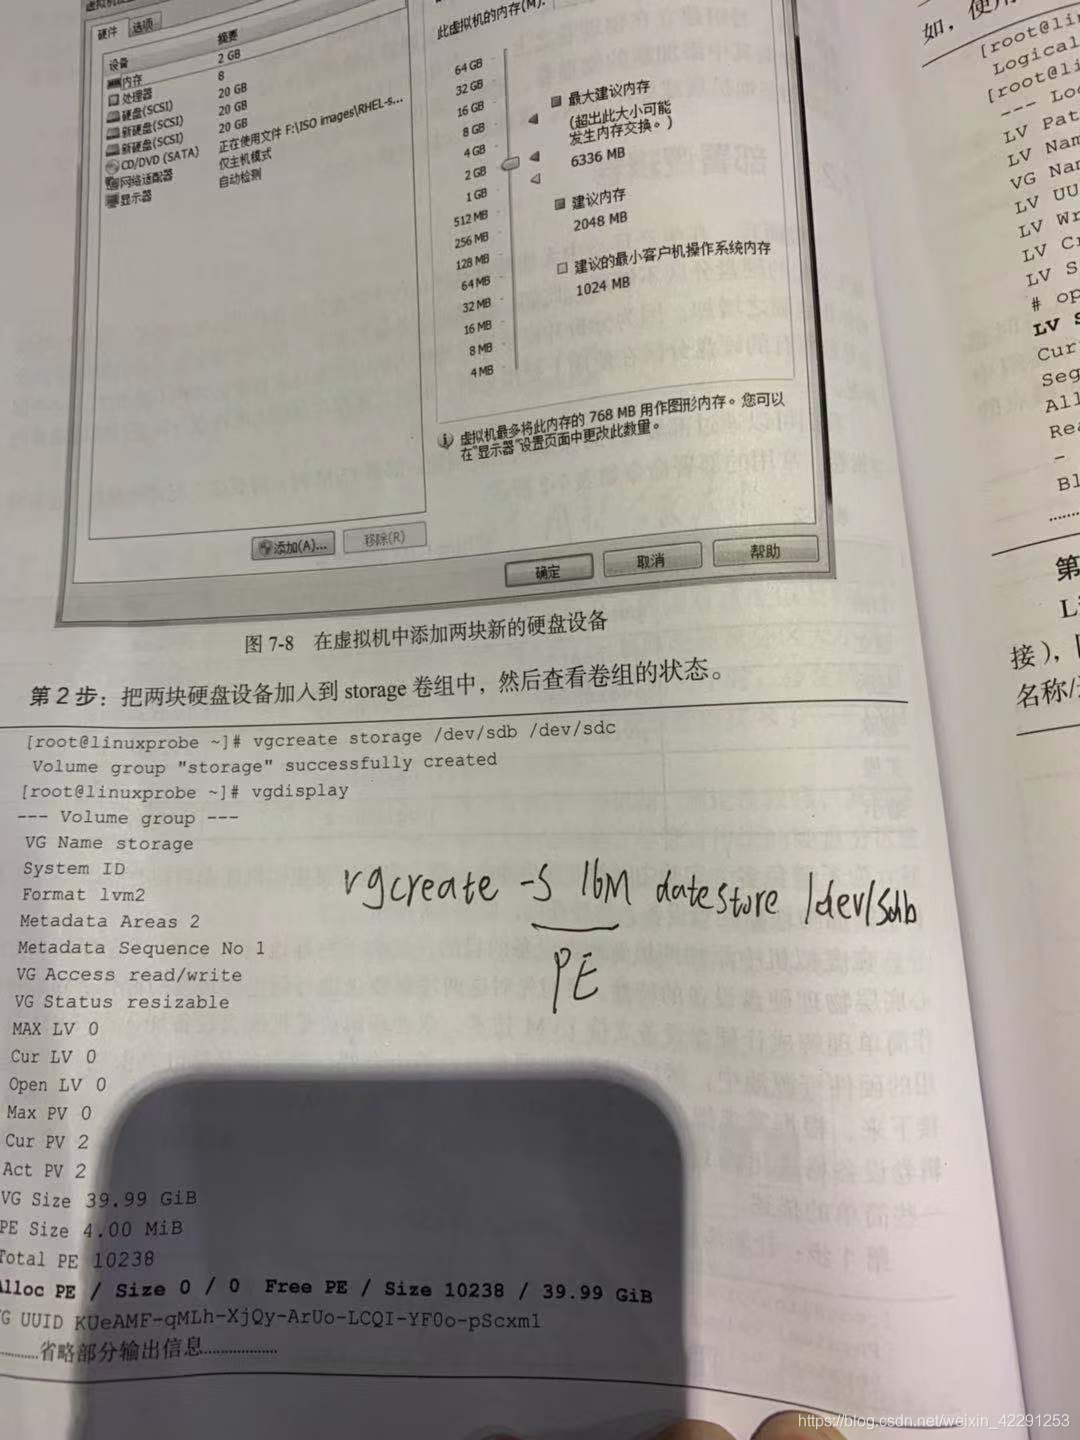 硬件 选项
设备 摘要
内存 2 GB
处理器 8
硬盘(SCSI) 20 GB
新硬盘(SCSI) 20 GB
新硬盘(SCSI) 20 GB
CD/DVD (SATA) 正在使用文件 F:\ISO images\RHEL-s...
网络适配器 仅主机模式
显示器 自动检测
添加(A)... 移除(R)
此虚拟机的内存(M):
64 GB
32 GB
16 GB
8 GB
4 GB
2 GB
1 GB
512 MB
256 MB
128 MB
64 MB
32 MB
16 MB
8 MB
4 MB
最大建议内存
(超出此大小可能
发生内存交换。)
6336 MB
建议内存
2048 MB
建议的最小客户机操作系统内存
1024 MB
虚拟机最多将此内存的 768 MB 用作图形内存。您可以
在"显示器"设置页面中更改此数量。
确定 取消 帮助
图 7-8 在虚拟机中添加两块新的硬盘设备
第 2 步：把两块硬盘设备加入到 storage 卷组中，然后查看卷组的状态。
[root@linuxprobe ~]# vgcreate storage /dev/sdb /dev/sdc
Volume group "storage" successfully created
[root@linuxprobe ~]# vgdisplay
--- Volume group ---
VG Name storage
System ID
Format lvm2
Metadata Areas 2
Metadata Sequence No 1
VG Access read/write
VG Status resizable
MAX LV 0
Cur LV 0
Open LV 0
Max PV 0
Cur PV 2
Act PV 2
VG Size 39.99 GiB
PE Size 4.00 MiB
Total PE 10238
Alloc PE / Size 0 / 0 Free PE / Size 10238 / 39.99 GiB
VG UUID KUeAMF-qMLh-XjQy-ArUo-LCQI-YF0o-pScxm1
............省略部分输出信息..................
vgcreate -s 16M datestore /dev/sdb
PE
如，使用
[root@lin
Logical
[root@li
--- Lo
LV Pat
LV Nam
VG Na
LV UU
LV Wr
LV Cr
LV S
# op
LV S
Cur
Seg
All
Rea
-
Bl
第
L
接），
名称/
https://blog.csdn.net/weixin_42291253